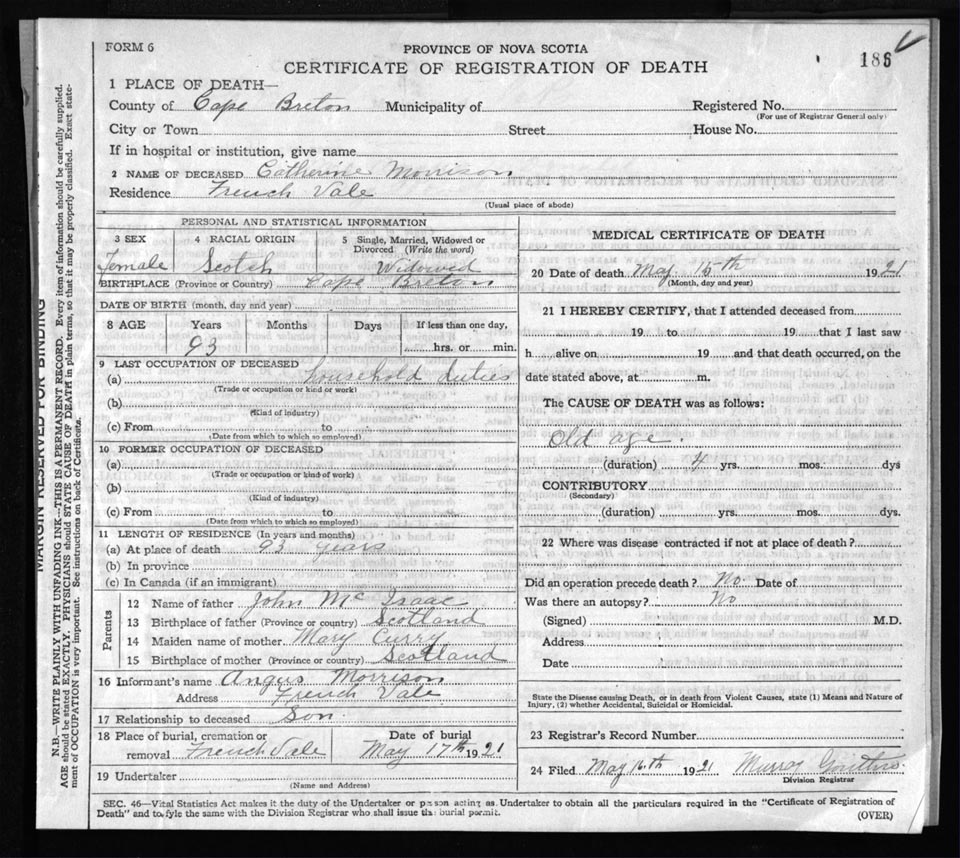 FORM 6
PROVINCE OF NOVA SCOTIA
186
CERTIFICATE OF REGISTRATION OF DEATH
1 PLACE OF DEATH—
County of Cape Breton Municipality of Registered No.
(For use of Registrar General only)
City or Town Street House No.
If in hospital or institution, give name
2 NAME OF DECEASED Catherine Morrison
Residence French Vale
(Usual place of abode)
PERSONAL AND STATISTICAL INFORMATION
3 SEX 4 RACIAL ORIGIN 5 Single, Married, Widowed or Divorced (Write the word)
Female Scotch Widowed
BIRTHPLACE (Province or Country) Cape Breton
DATE OF BIRTH (month, day and year)
8 AGE Years Months Days If less than one day,
93 hrs. or min.
9 LAST OCCUPATION OF DECEASED
(a) household duties
(Trade or occupation or kind of work)
(b)
(Kind of industry)
(c) From to
(Date from which to which so employed)
10 FORMER OCCUPATION OF DECEASED
(a)
(Trade or occupation or kind of work)
(b)
(Kind of industry)
(c) From to
(Date from which to which so employed)
11 LENGTH OF RESIDENCE (In years and months)
(a) At place of death 93 years
(b) In province
(c) In Canada (if an immigrant)
Parents
12 Name of father John Mc Isaac
13 Birthplace of father (Province or country) Scotland
14 Maiden name of mother Mary Curry
15 Birthplace of mother (Province or country) Scotland
16 Informant's name Angus Morrison
Address French Vale
17 Relationship to deceased Son.
18 Place of burial, cremation or removal French Vale
Date of burial May 17th 1921
19 Undertaker
(Name and Address)
MEDICAL CERTIFICATE OF DEATH
20 Date of death May 15th 1921
(Month, day and year)
21 I HEREBY CERTIFY, that I attended deceased from
19 to 19 that I last saw
h alive on 19 and that death occurred, on the
date stated above, at m.
The CAUSE OF DEATH was as follows:
Old age.
(duration) 4 yrs. mos. dys
CONTRIBUTORY
(Secondary)
(duration) yrs. mos. dys.
22 Where was disease contracted if not at place of death?
Did an operation precede death? No Date of
Was there an autopsy? No
(Signed) M.D.
Address
Date
State the Disease causing Death, or in death from Violent Causes, state (1) Means and Nature of
Injury, (2) whether Accidental, Suicidal or Homicidal.
23 Registrar's Record Number
24 Filed May 16th 1921 Murray
Division Registrar
SEC. 46—Vital Statistics Act makes it the duty of the Undertaker or person acting as Undertaker to obtain all the particulars required in the "Certificate of Registration of
Death" and to fyle the same with the Division Registrar who shall issue the burial permit.
(OVER)
MARGIN RESERVED FOR BINDING
N.B.—WRITE PLAINLY WITH UNFADING INK—THIS IS A PERMANENT RECORD. Every item of information should be carefully supplied.
AGE should be stated EXACTLY. PHYSICIANS should STATE CAUSE OF DEATH in plain terms, so that it may be properly classified. Exact state-
ment of OCCUPATION is very important. See instructions on back of Certificate.